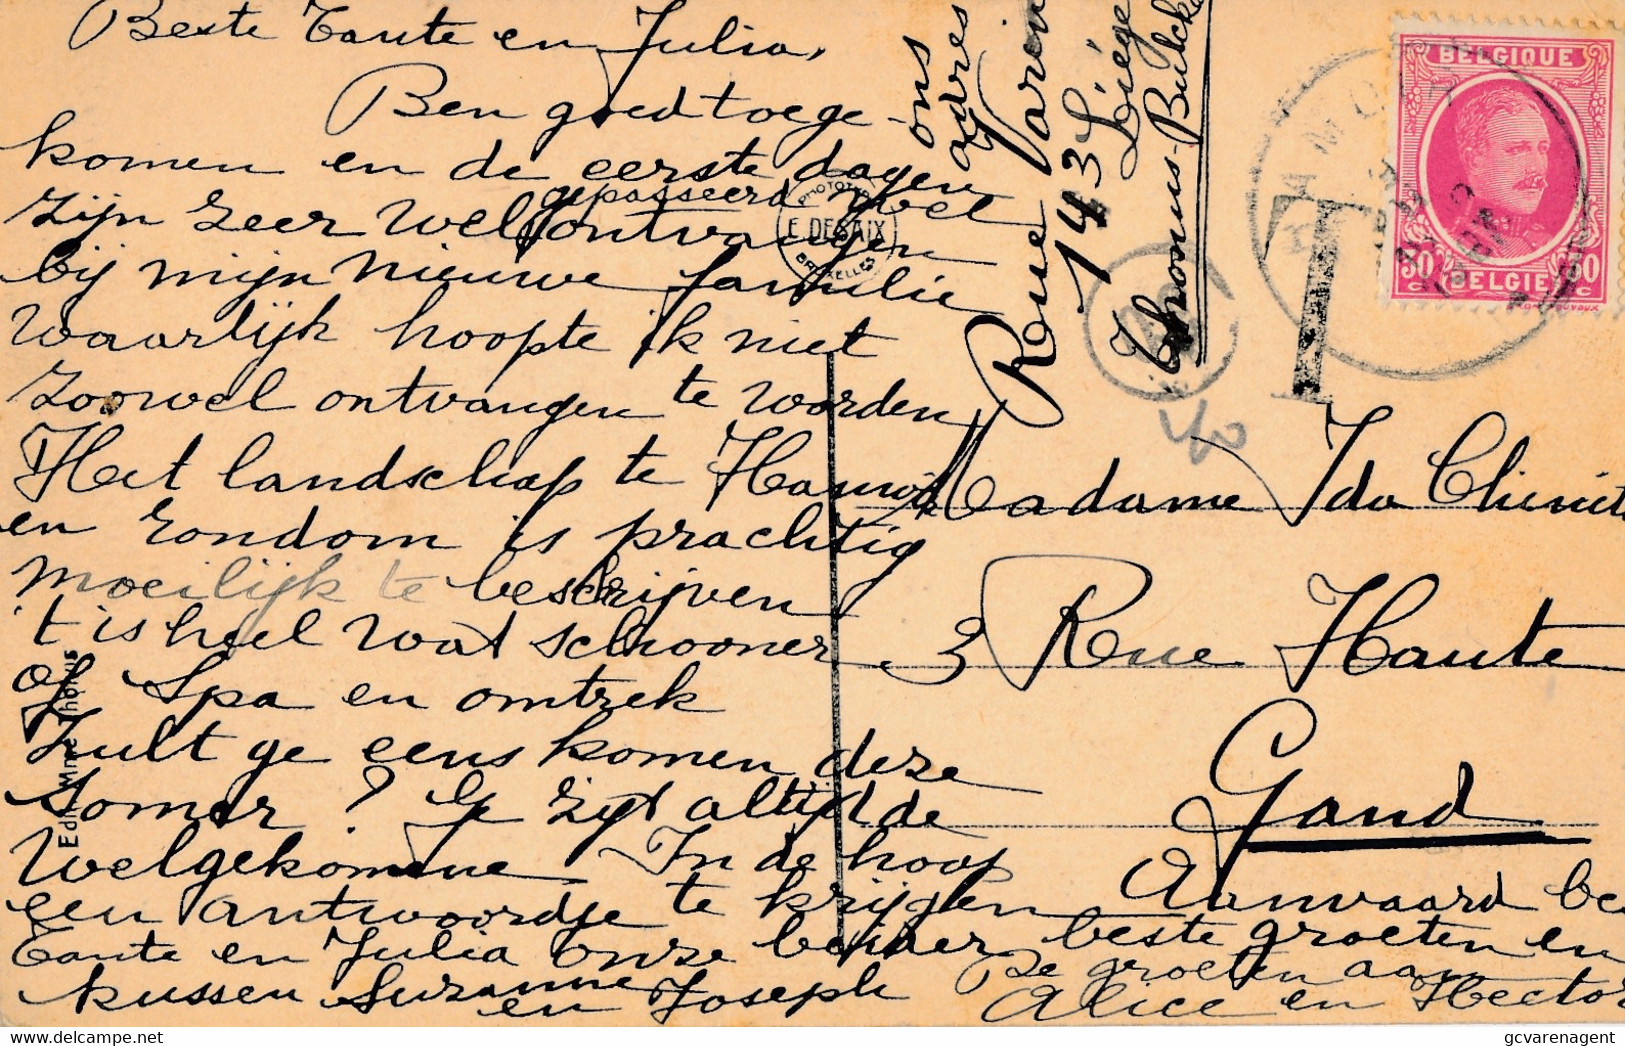 Beste Tante en Julia,
Ben goed toege-
komen en de eerste dagen
gepasseerd
zijn zeer wel ontvangen
bij mijn nieuwe familie
waarlijk hoopte ik niet
zoowel ontvangen te worden
Het landschap te Hamoir
en rondom is prachtig
moeilijk te beschrijven
't is heel wat schooner
of Spa en omtrek
Zult ge eens komen deze
zomer? Ge zijt altijd de
welgekomene. In de hoop
een antwoordje te krijgen Aanvaard
Tante en Julia onze beider beste groeten en
kussen Suzanne
en Joseph
De groeten aan
Alice en Hector
ons
adres
Rue Varin
143 Liége
Thonus-Bulcke
PHOTOTYPIE
E. DESAIX
BRUXELLES
BELGIQUE
30c 30c
BELGIË
HAMOIR
T
Madame Ida
3 Rue Haute
Gand
Edit. Mme Thonus
gcvarenagent